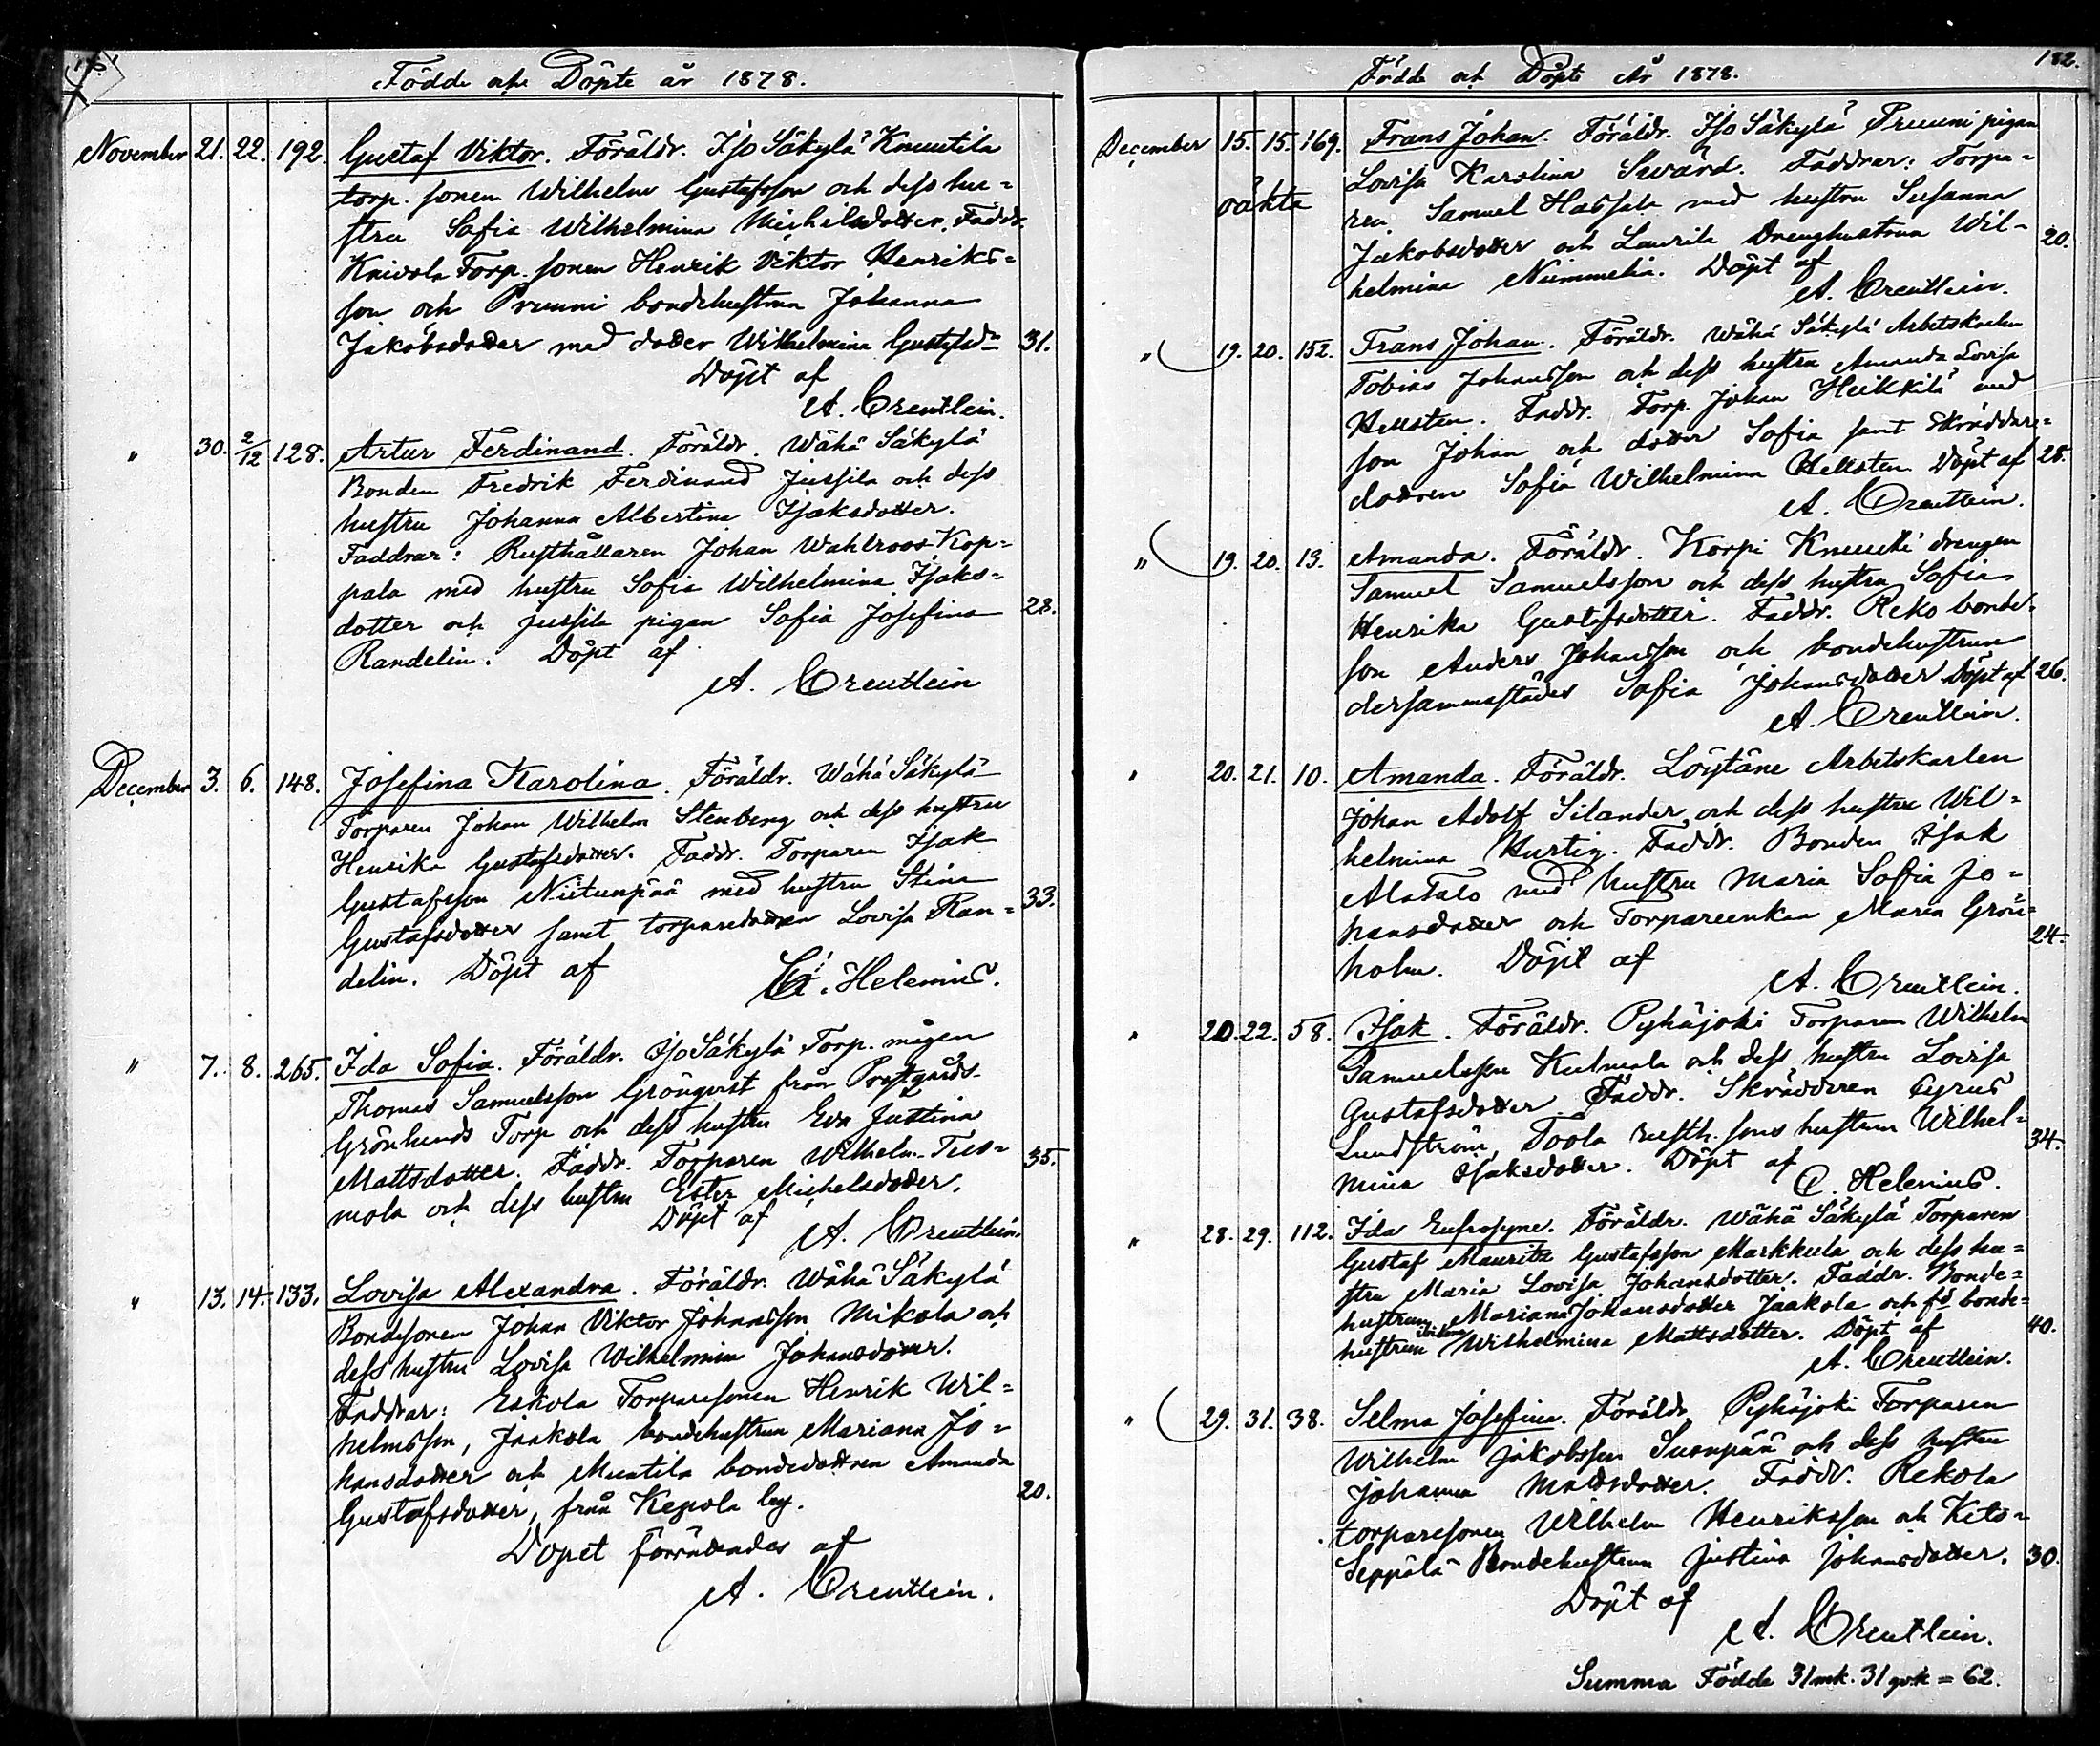 Födde och Döpte år 1878.
November 21. 22. 192. Gustaf Viktor. Föräldr. Iso Säkylä Knuutila
torp. sonen Wilhelm Gustafsson och dess hu=
stru Sofia Wilhelmina Michelsdotter. Faddr.
Knivola Torp. sonen Henrik Viktor Henriks=
son och Pruuni bondehustrun Johanna
Jakobsdotter med dotter Wilhelmina Gustafsdr 31.
Döpt af
A. Creutlein.
" 30. 2/12 128. Artur Ferdinand. Föräldr. Wähä Säkylä
Bonden Fredrik Ferdinand Jussila och dess
hustru Johanna Albertina Isaksdotter.
Faddrar: Rusthållaren Johan Wahlroos Kop=
pala med hustru Sofia Wilhelmina Isaks=
dotter och Jussila pigan Sofia Josefina 28.
Randelin. Döpt af
A. Creutlein
December 3. 6. 148. Josefina Karolina. Föräldr. Wähä Säkylä
Torparen Johan Wilhelm Stenberg och dess hustru
Henrika Gustafsdotter. Faddr. Torparen Isak
Gustafsson Niitunpää med hustru Stina
Gustafsdotter samt torparedottren Lovisa Ran= 33.
delin. Döpt af
Helenius.
" 7. 8. 265. Ida Sofia. Föräldr. Iso Säkylä Torp. mågen
Thomas Samuelsson Grönqvist från Prestgårds
Grönlunds Torp och dess hustru Eva Justina
Mattsdotter. Faddr. Torparen Wilhelm Tuo= 35.
mola och dess hustru Ester Michelsdotter.
Döpt af
A. Creutlein.
" 13. 14. 133. Lovisa Alexandra. Föräldr. Wähä Säkylä
Bondesonen Johan Viktor Johansson Mikola och
dess hustru Lovisa Wilhelmina Johansdotter.
Faddrar: Eskola Torparesonen Henrik Wil=
helmsson, Jaakola bondehustrun Mariana Jo=
hansdotter och Muntila bondedottren Amanda
Gustafsdotter, från Kepola by. 20.
Dopet förrättades af
A. Creutlein.
182.
Födde och Döpte År 1878.
December 15. 15. 169. Frans Johan. Föräldr. Iso Säkylä Pruuni pigan
oäkta Lovisa Karolina Swärd. Faddrar: Torpa=
ren Samuel Hassala med hustru Susanna
Jakobsdotter och Laurila Drenghustrun Wil= 20.
helmina Nummelin. Döpt af
A. Creutlein.
" 19. 20. 152. Frans Johan. Föräldr. Wähä Säkylä Arbetskarlen
Tobias Johansson och dess hustru Amanda Lovisa
Hellsten. Faddr. Torp. Johan Heikkilä med
son Johan och dotter Sofia samt Skräddare=
dottren Sofia Wilhelmina Hellsten. Döpt af 28.
A. Creutlein.
" 19. 20. 13. Amanda. Föräldr. Korpi Knuuti drengen
Samuel Samuelsson och dess hustru Sofia
Henrika Gustafsdotter. Faddr. Reko bonde=
son Anders Johansson och bondehustrun
dersammastädes Sofia Johansdotter Döpt af 26.
A. Creutlein.
" 20. 21. 10. Amanda. Föräldr. Löytäne Arbetskarlen
Johan Adolf Silander och dess hustru Wil=
helmina Hurtig. Faddr. Bonden Isak
Alatalo med hustru Maria Sofia Jo=
hansdotter och Torpareenkan Maria Grön=
holm. Döpt af 24.
A. Creutlein.
" 20. 22. 58. Isak. Föräldr. Pyhäjoki Torparen Wilhelm
Samuelsson Kulmala och dess hustru Lovisa
Gustafsdotter Faddr. Skräddaren Cyrus
Lundström, Toola rusth. sons hustrun Wilhel=
mina Isaksdotter. Döpt af 34.
C. Helenius.
" 28. 29. 112. Ida Eufrosyne. Föräldr. Wähä Säkylä Torparen
Gustaf Mauritz Gustafsson Markkula och dess hu=
stru Maria Lovisa Johansdotter. Faddr. Bonde=
hustrun Mariana Johansdotter Jaakola och fd bonde=
hustrun Wilhelmina Mattsdotter. Döpt af 40.
A. Creutlein.
" 29. 31. 38. Selma Josefina. Föräldr. Pyhäjoki Torparen
Wilhelm Jakobsson Suonpää och dess hustru
Johanna Mattsdotter. Faddr. Rekola
torparesonen Wilhelm Henriksson och Keto=
Seppälä Bondehustrun Justina Johansdotter. 30.
Döpt af
A. Creutlein.
Summa Födde 31 mk. 31 qvk = 62.